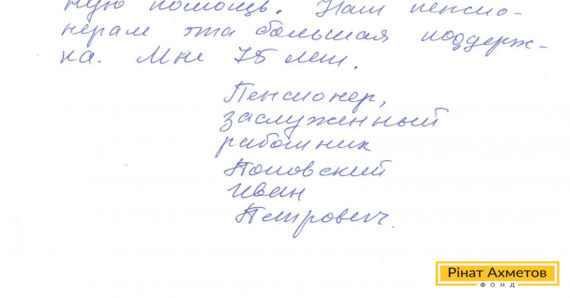 ную помощь. Нам пенсио-
нерам эта большая поддерж-
ка. Мне 75 лет.
Пенсионер,
заслуженный
работник
Поповский
Иван
Петрович.
Рінат Ахметов
ФОНД